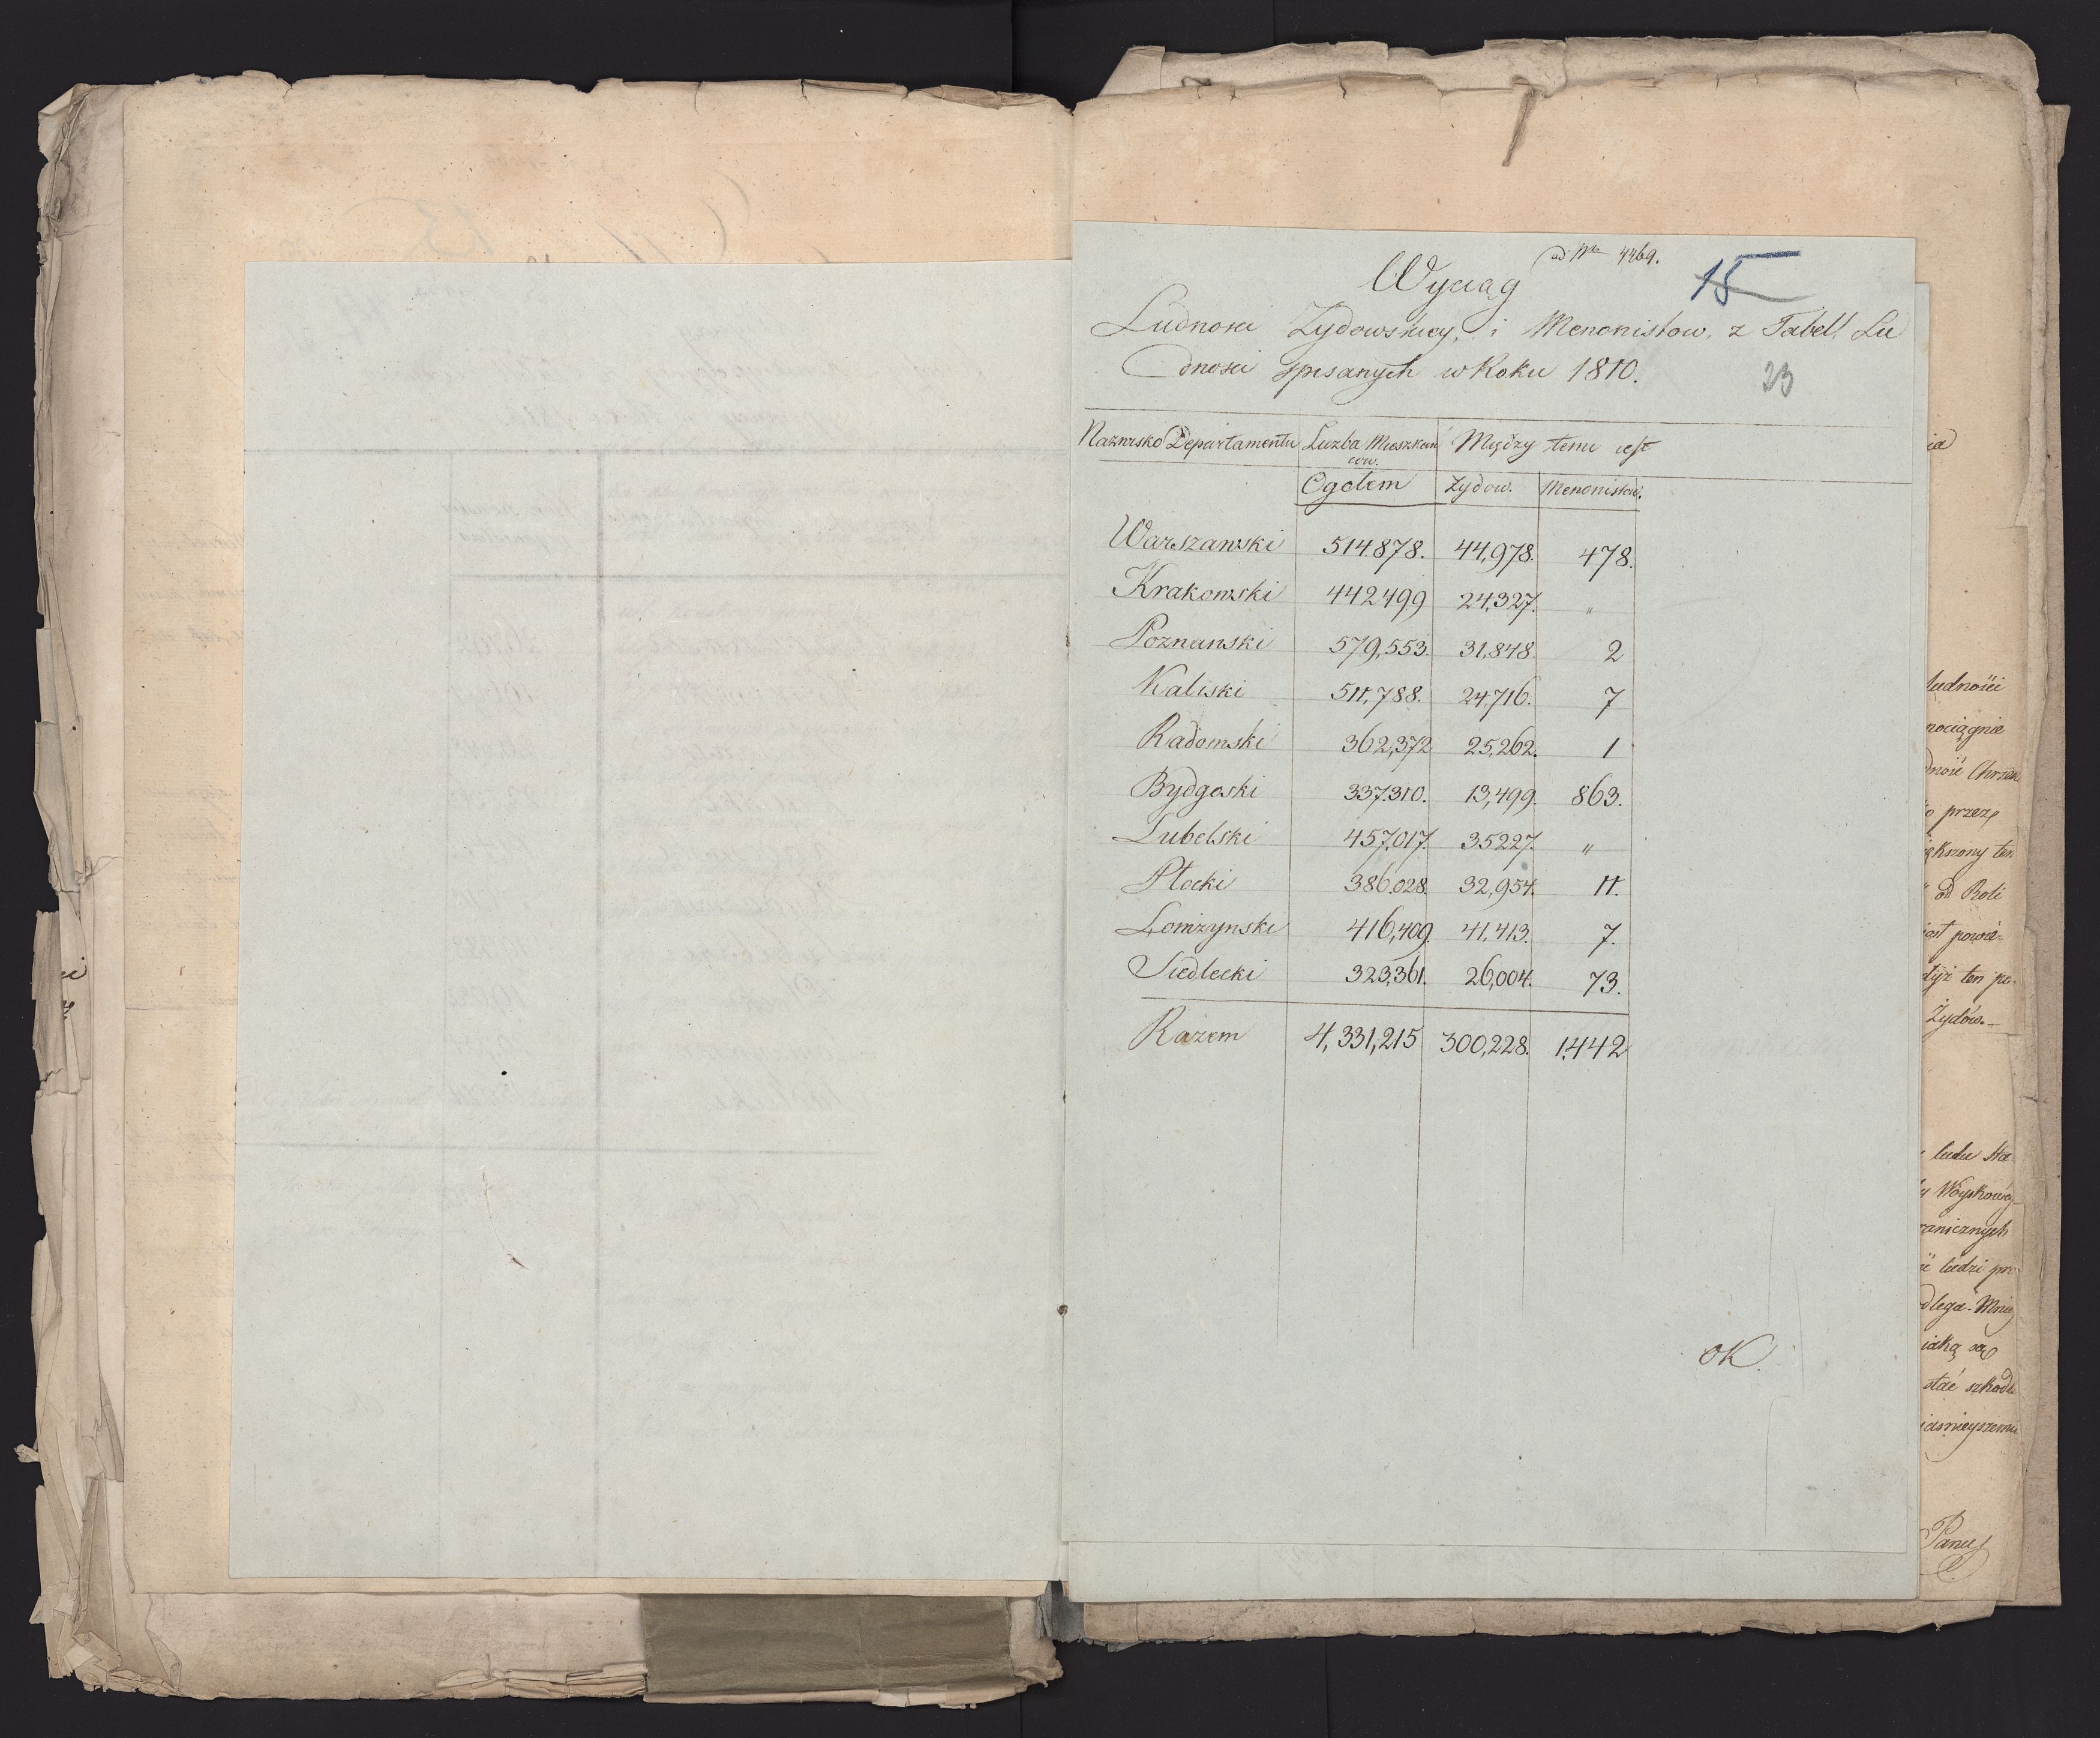 ad Nr 4469.
15
Wyciąg
Ludnosci Zydowskiey, i Menonistow, z Tabell Lu
dnosci spisanych w Roku 1810.
23
Nazwisko Departamentu Liczba Mieszkan
cow. Między temi iest
Ogołem Zydow. Menonistow.
Warszawski 514878. 44,978. 478.
Krakowski 442499 24,327. "
Poznanski 579,553. 31,848. 2
Kaliski 511,788. 24,716. 7
Radomski 362,372 25,262. 1
Bydgoski 337.310. 13,499. 863.
Lubelski 457,017. 35227. "
Płocki 386.028. 32,954. 11.
Łomzynski 416,409. 41,413. 7.
Siedlecki 323,361. 26,004. 73.
Razem 4,331,215 300,228. 1,442
OK.
ludności
nociągnie
o przez
od Roli
dyż ten po-
Żydów.
ludu sta
Woyskowey
ranicznych
ludzi prz
iaką się
stać szkoda
iaśnieyszemu
Panu